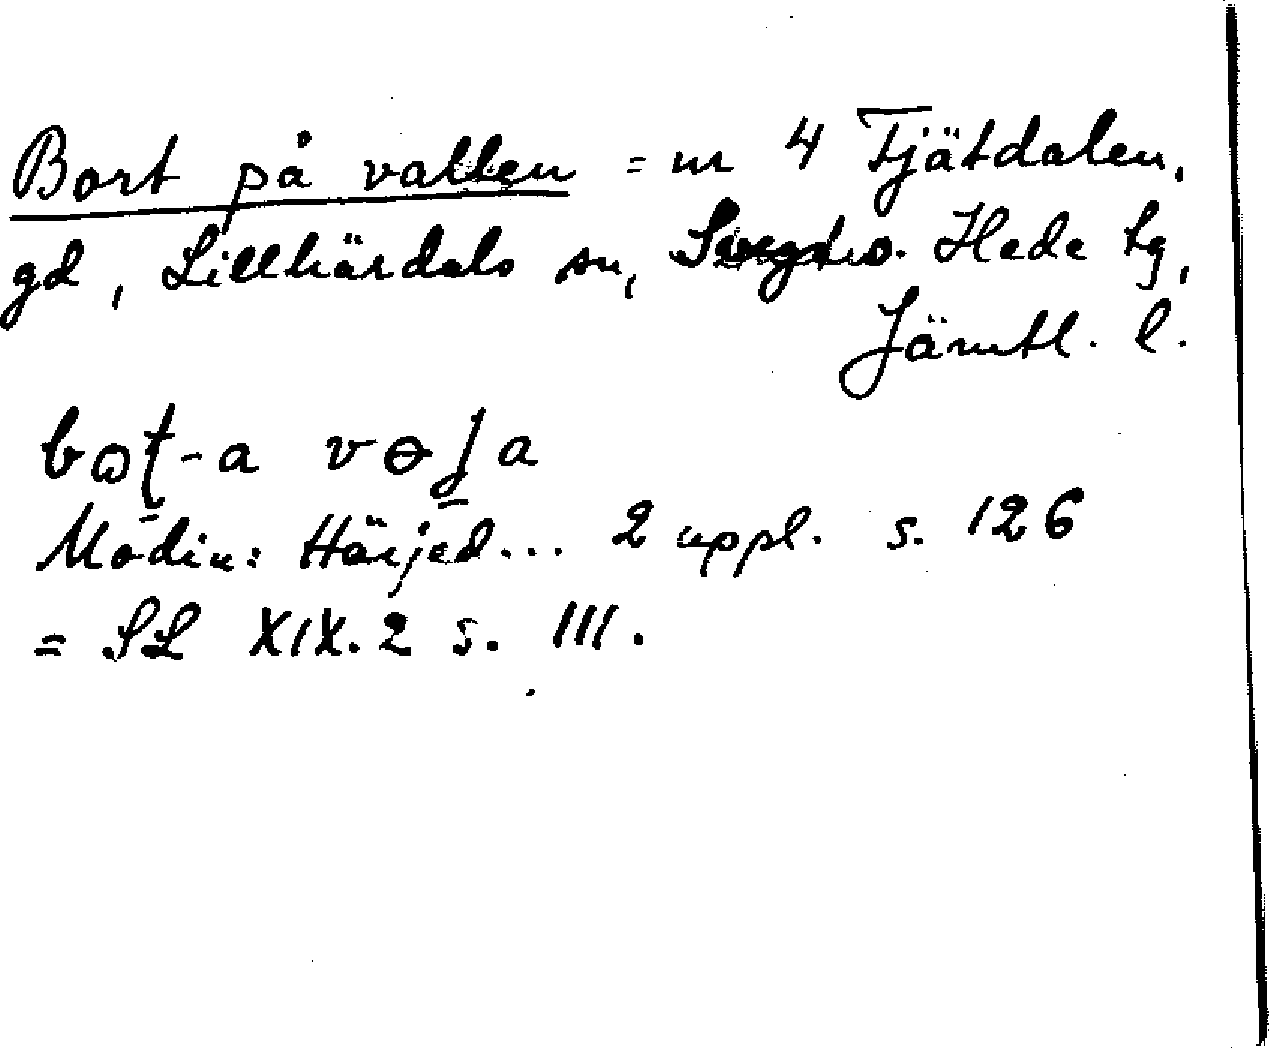 Bort på vallen = nr 4 Tjätdalen,
gd, Lillhärdals sn, Hede tg,
Jämtl. l.
Modin: Härjed... 2 uppl. s. 126
= SL XIX.2 s. 111.